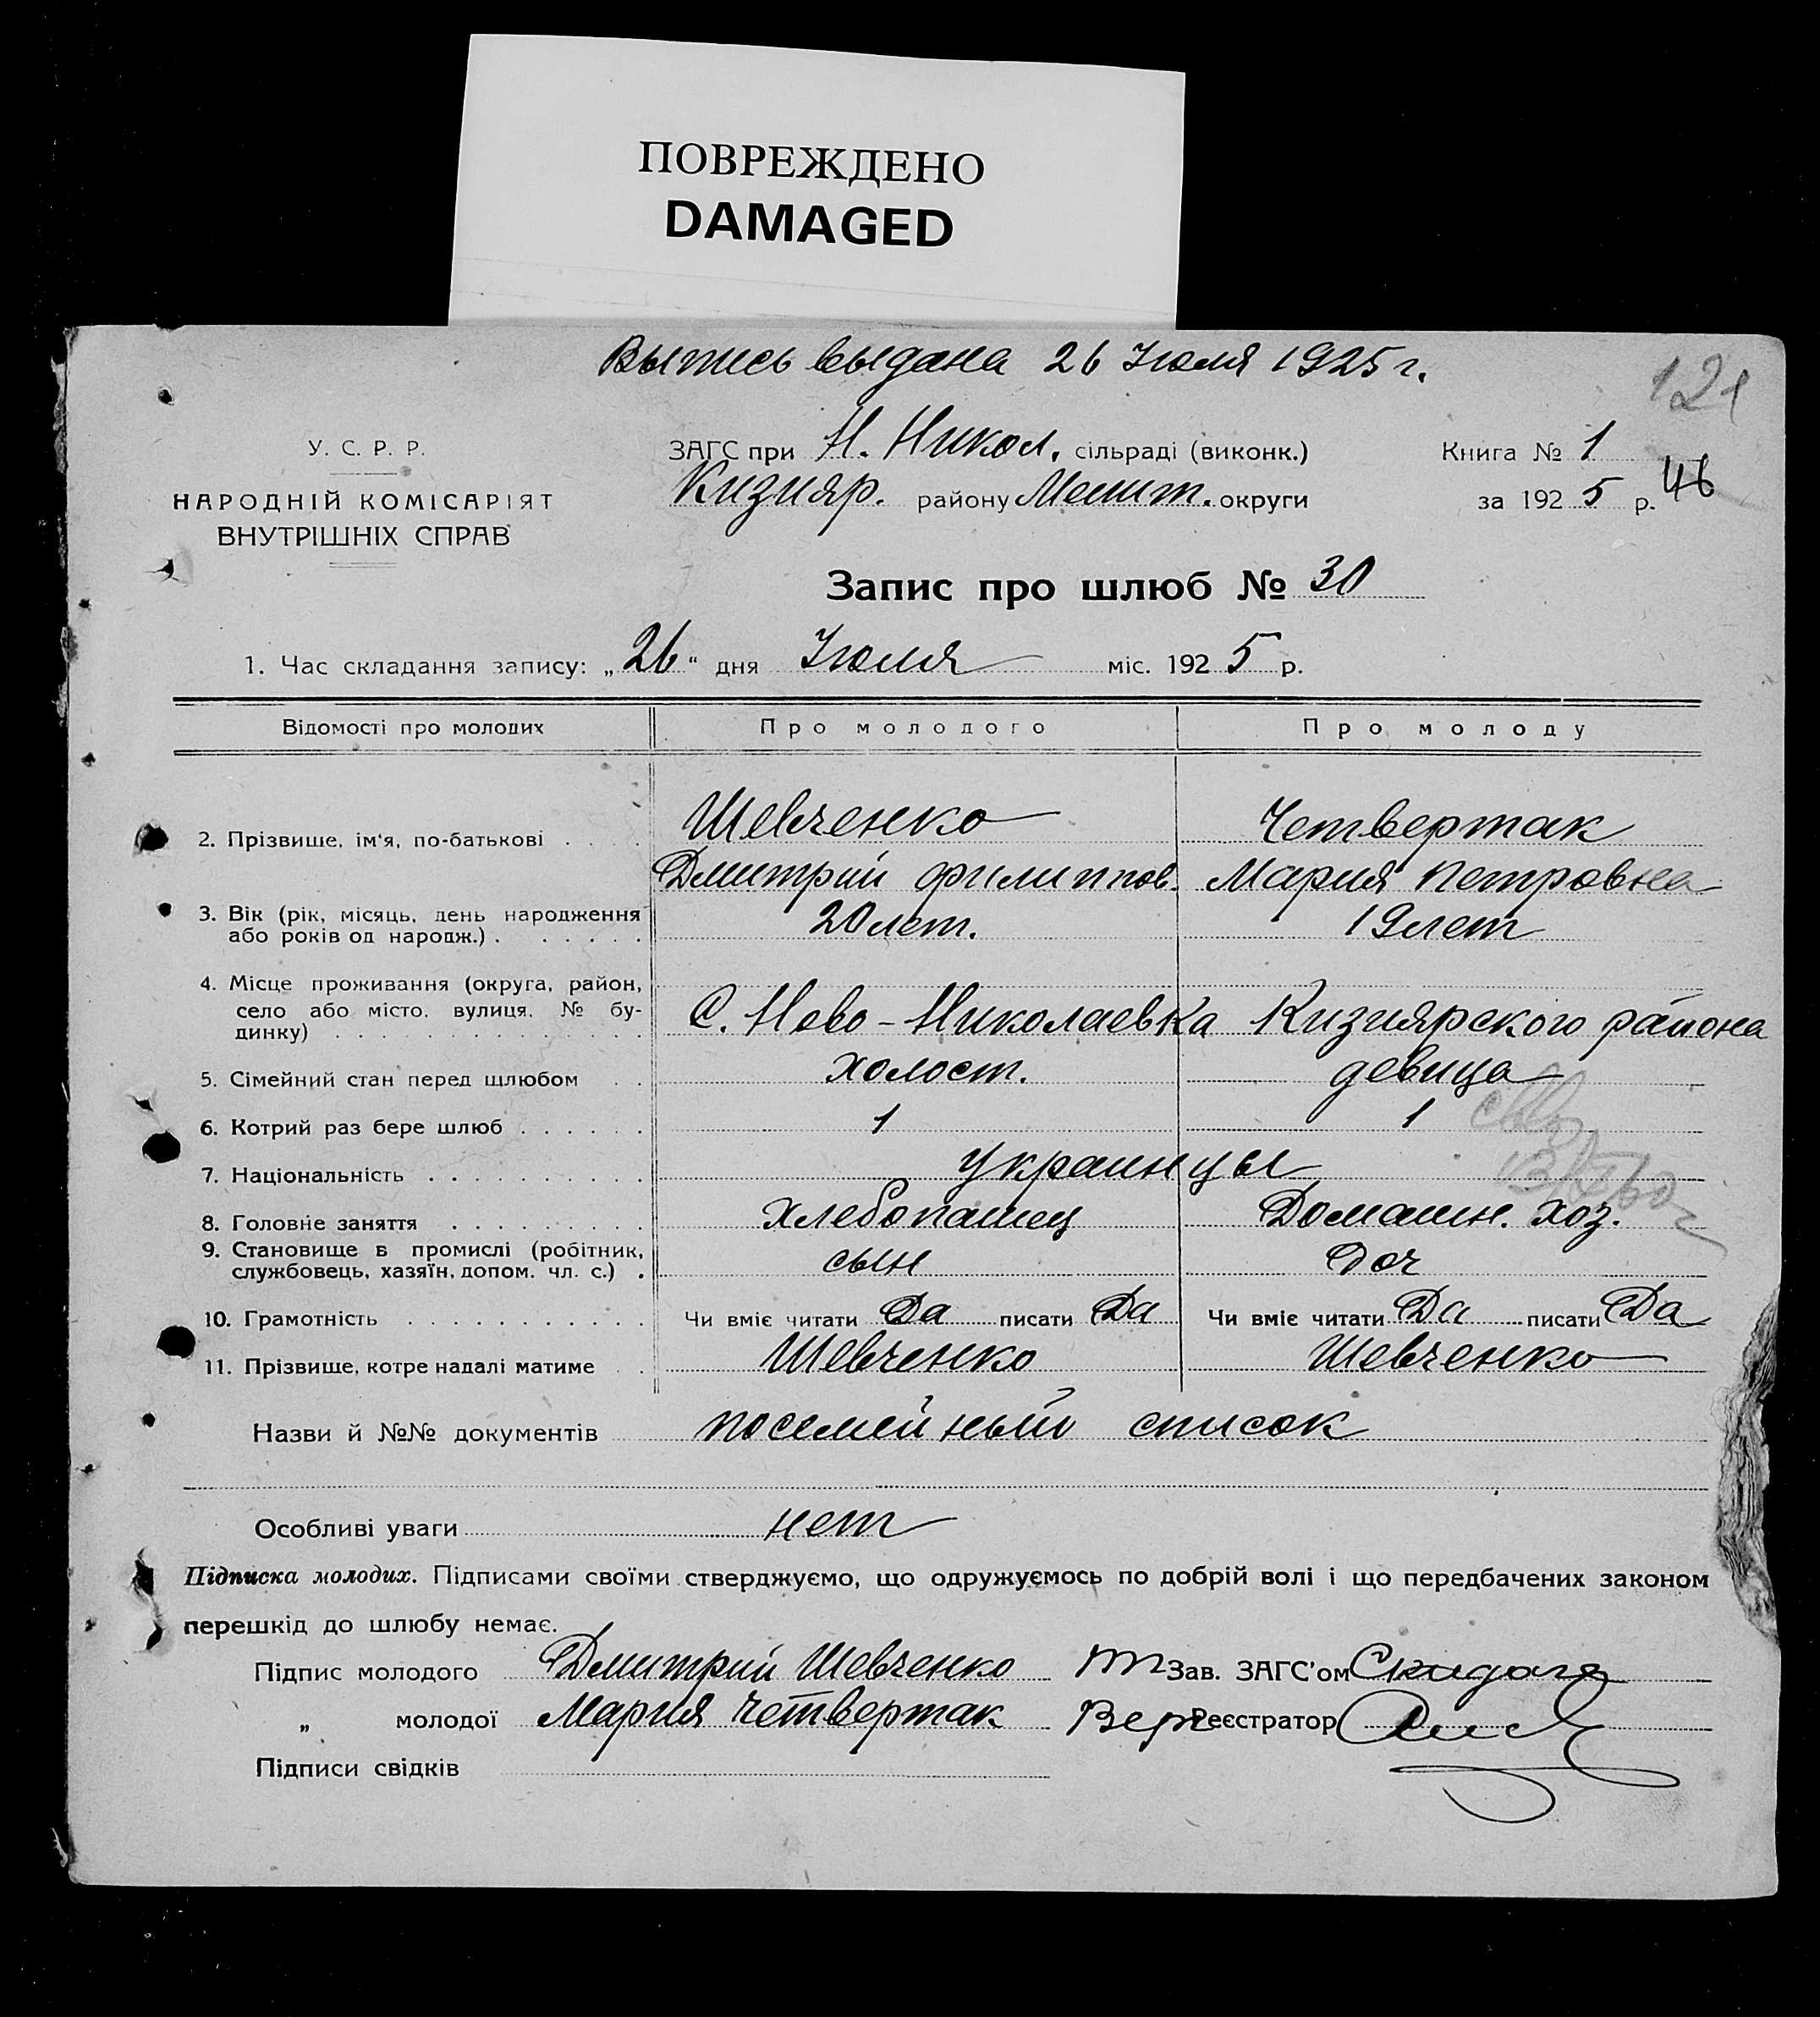 ПОВРЕЖДЕНО
DAMAGED
Выпись выдана 26 Июля 1925 г.
121
У. С. Р. Р.
НАРОДНІЙ КОМІСАРІЯТ
ВНУТРІШНІХ СПРАВ
ЗАГС при Н. Никол. сільраді (виконк.)
Кизияр. району Мелит. округи
Книга № 1
за 1925 р. 46
Запис про шлюб № 30
1. Час складання запису: „26“ дня Июля міс. 1925 р.
Відомості про молодих Про молодого Про молоду
2. Прізвище, ім'я, по-батькові . . . . Шевченко Четвертак
Дмитрий Филиппов. Мария Петровна
3. Вік (рік, місяць, день народження або років од народж.) . . . . . . 20 лет. 19 лет
4. Місце проживання (округа, район, село або місто, вулиця, № будинку) С. Ново-Николаевка Кизиярского района
5. Сімейний стан перед шлюбом . . холост. девица
6. Котрий раз бере шлюб . . . . . . 1 1
7. Національність . . . . . . . . . . украинцы
8. Головне заняття . . . . . . . . . Хлебопашец Домашн. хоз.
9. Становище в промислі (робітник, службовець, хазяїн, допом. чл. с.) . сын Доч
10. Грамотність . . . . . . . . . . . Чи вміє читати Да писати Да Чи вміє читати Да писати Да
11. Прізвище, котре надалі матиме . Шевченко Шевченко
Назви й №№ документів посемейный список
Особливі уваги нет
Підписка молодих. Підписами своїми стверджуємо, що одружуємось по добрій волі і що передбачених законом
перешкід до шлюбу немає.
Підпис молодого Дмитрий Шевченко Зав. ЗАГС'ом
„ молодої Мария Четвертак Реєстратор
Підписи свідків